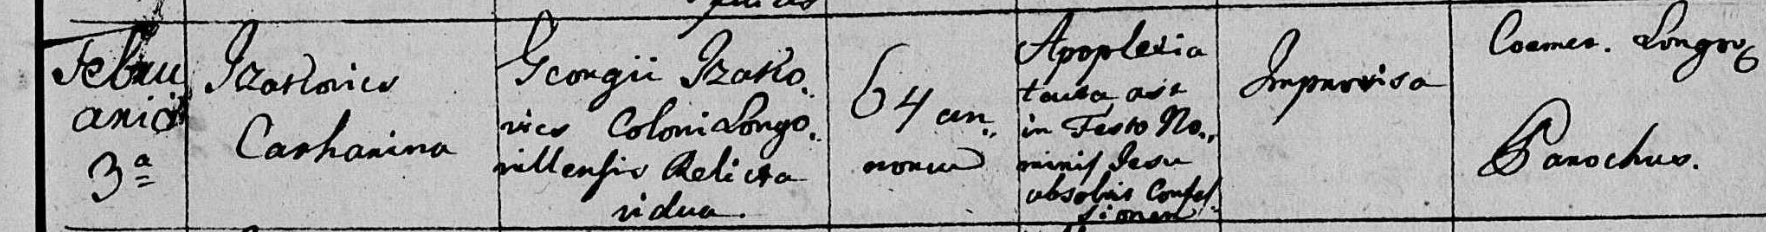 Febru
arii
3ª
Izakovics
Catharina
Georgii Izako,
vics Coloni Longo,
villensis Relicta
vidua.
64 an,,
norum
Apoplexia
tacta est
in Festo No,,
minis Jesu
absolvit Confes,
sionem
Improvisa
Coemet. Longov
Parochus.